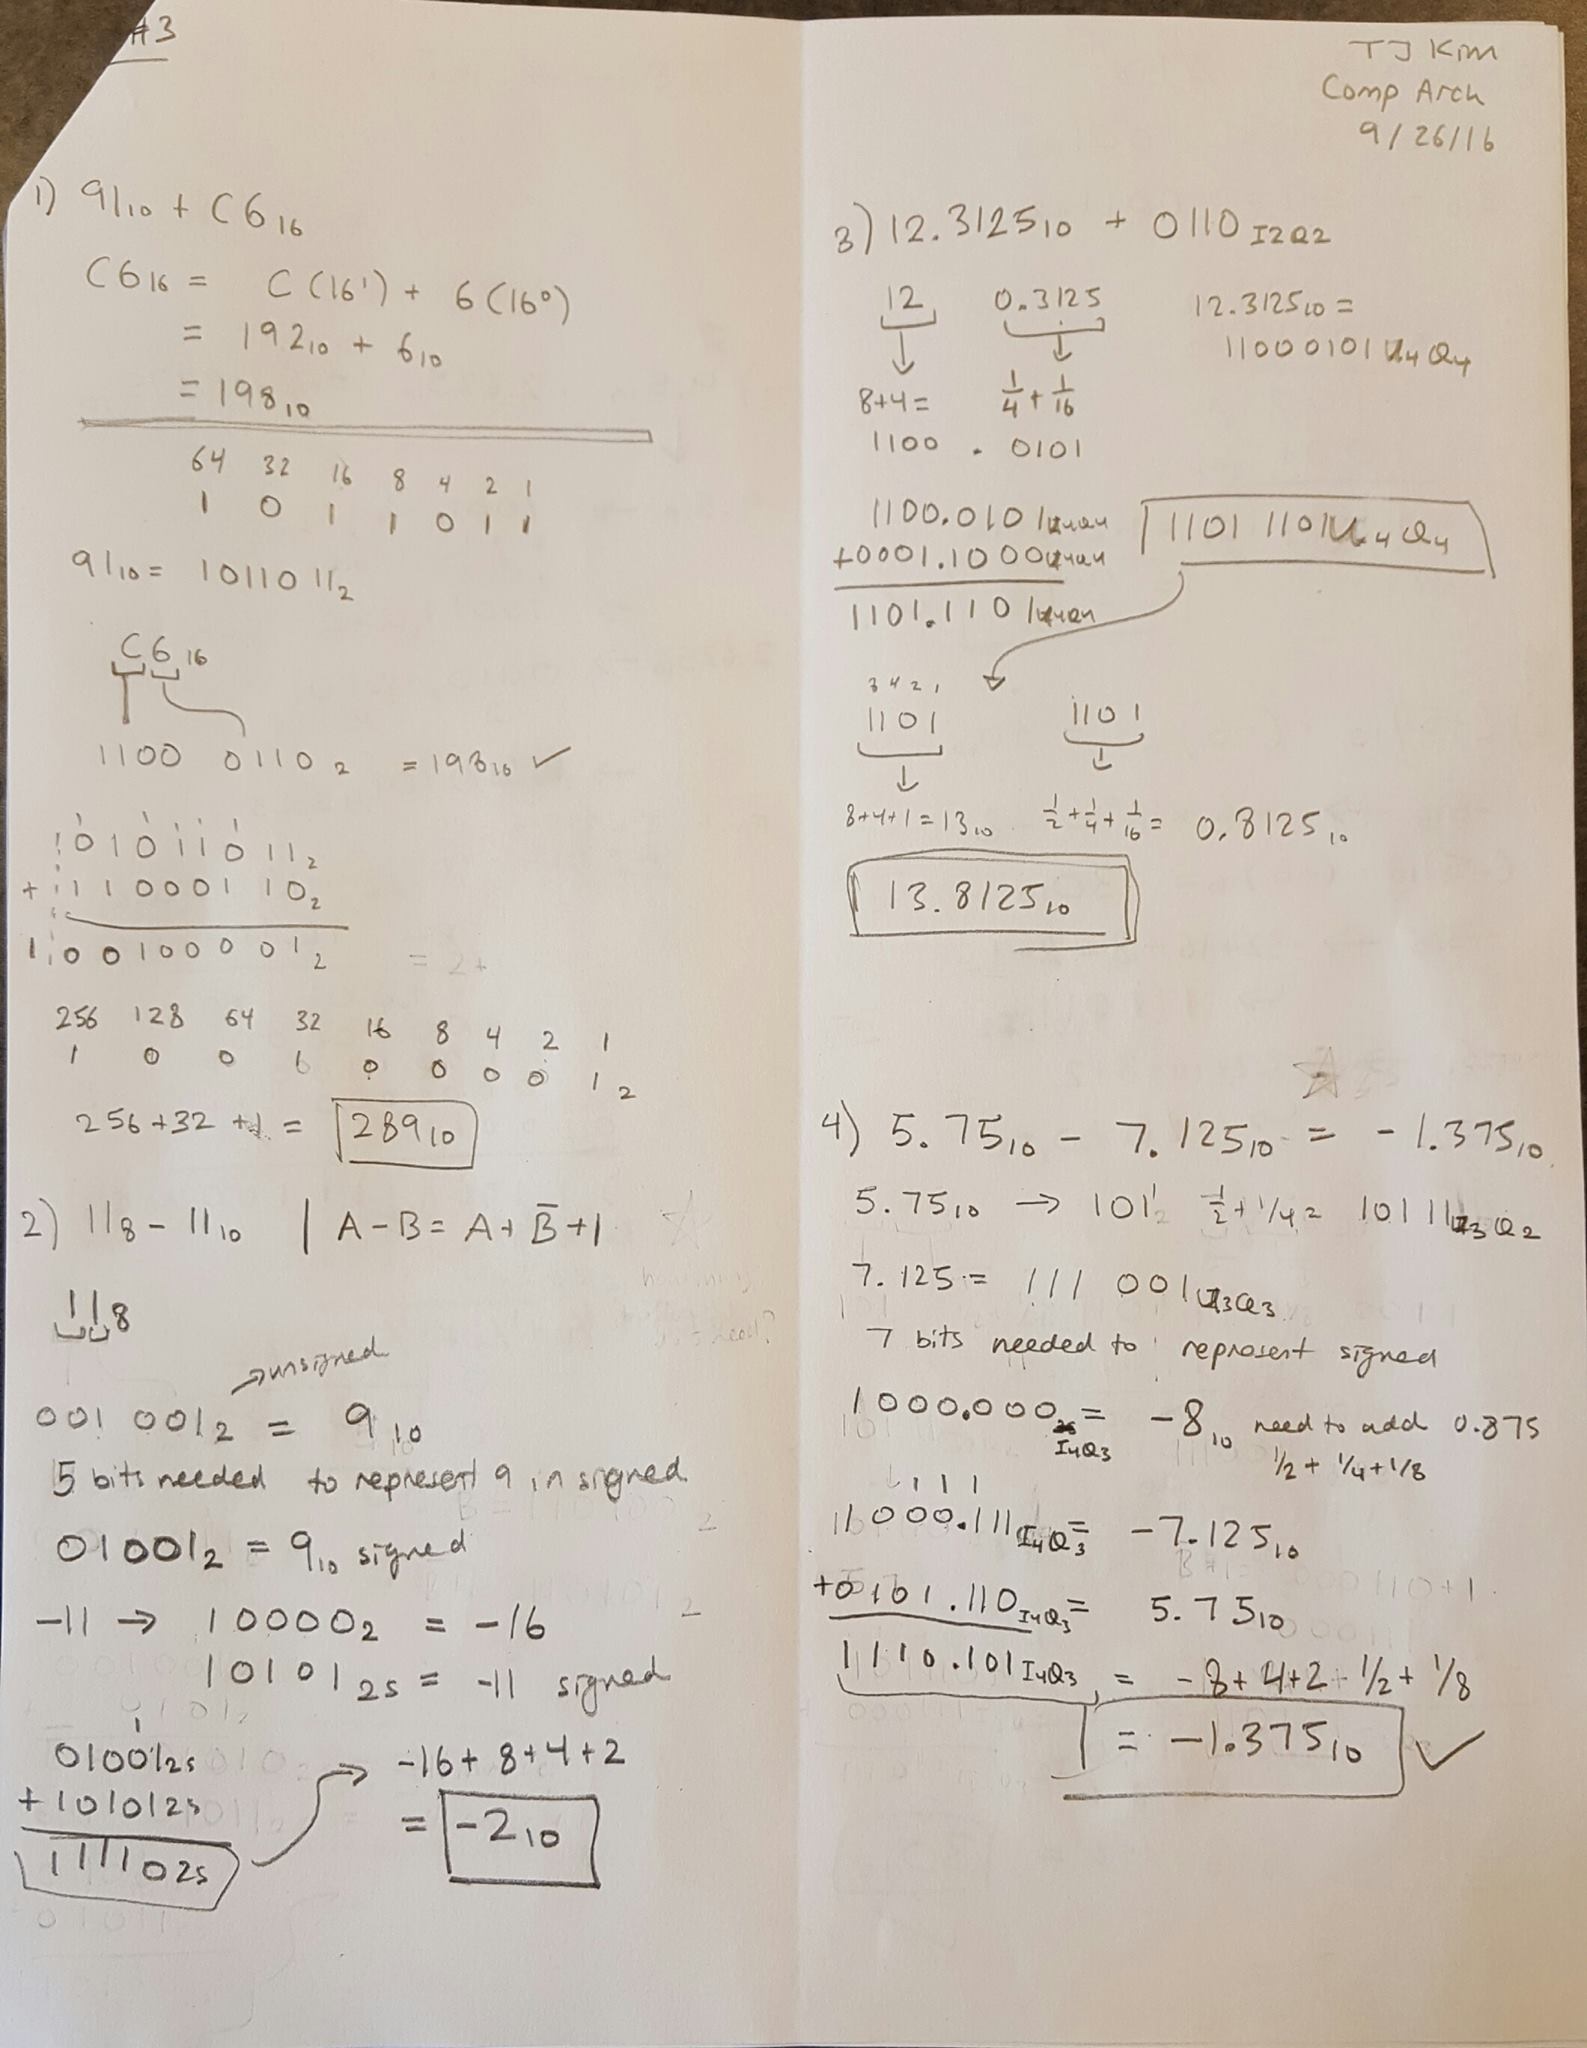 #3
1) 91₁₀ + C6₁₆
C6₁₆ = C(16¹) + 6(16⁰)
= 192₁₀ + 6₁₀
= 198₁₀
64 32 16 8 4 2 1
1 0 1 1 0 1 1
91₁₀ = 1011011₂
C6₁₆
1100 0110₂ = 198₁₀ ✓
01011011₂
+ 11000110₂
100100001₂
256 128 64 32 16 8 4 2 1
1 0 0 1 0 0 0 0 1₂
256+32+1 = 289₁₀
2) 11₈ - 11₁₀ | A-B = A+B̄+1
11₈
→unsigned
001001₂ = 9₁₀
5 bits needed to represent 9 in signed
01001₂ = 9₁₀ signed
-11 → 10000₂ = -16
10101₂ₛ = -11 signed
01001₂ₛ
+10101₂ₛ
11110₂ₛ
→ -16+8+4+2
= -2₁₀
TJ Kim
Comp Arch
9/26/16
3) 12.3125₁₀ + 0110 I2Q2
12 0.3125 12.3125₁₀ =
11000101 U4Q4
8+4= 1/4 + 1/16
1100 . 0101
1100.0101 U4Q4
+0001.1000 U4Q4
1101.1101 U4Q4
11011101 U4Q4
8 4 2 1
1101 1101
8+4+1=13₁₀ 1/2+1/4+1/16= 0.8125₁₀
13.8125₁₀
4) 5.75₁₀ - 7.125₁₀ = -1.375₁₀
5.75₁₀ → 101₂ 1/2+1/4= 10111 U3Q2
7.125 = 111 001 U3Q3
7 bits needed to represent signed
1000.000 I4Q3 = -8₁₀ need to add 0.875
1/2+1/4+1/8
1000.111 I4Q3 = -7.125₁₀
+0101.110 I4Q3 = 5.75₁₀
1110.101 I4Q3 = -8+4+2+1/2+1/8
= -1.375₁₀ ✓